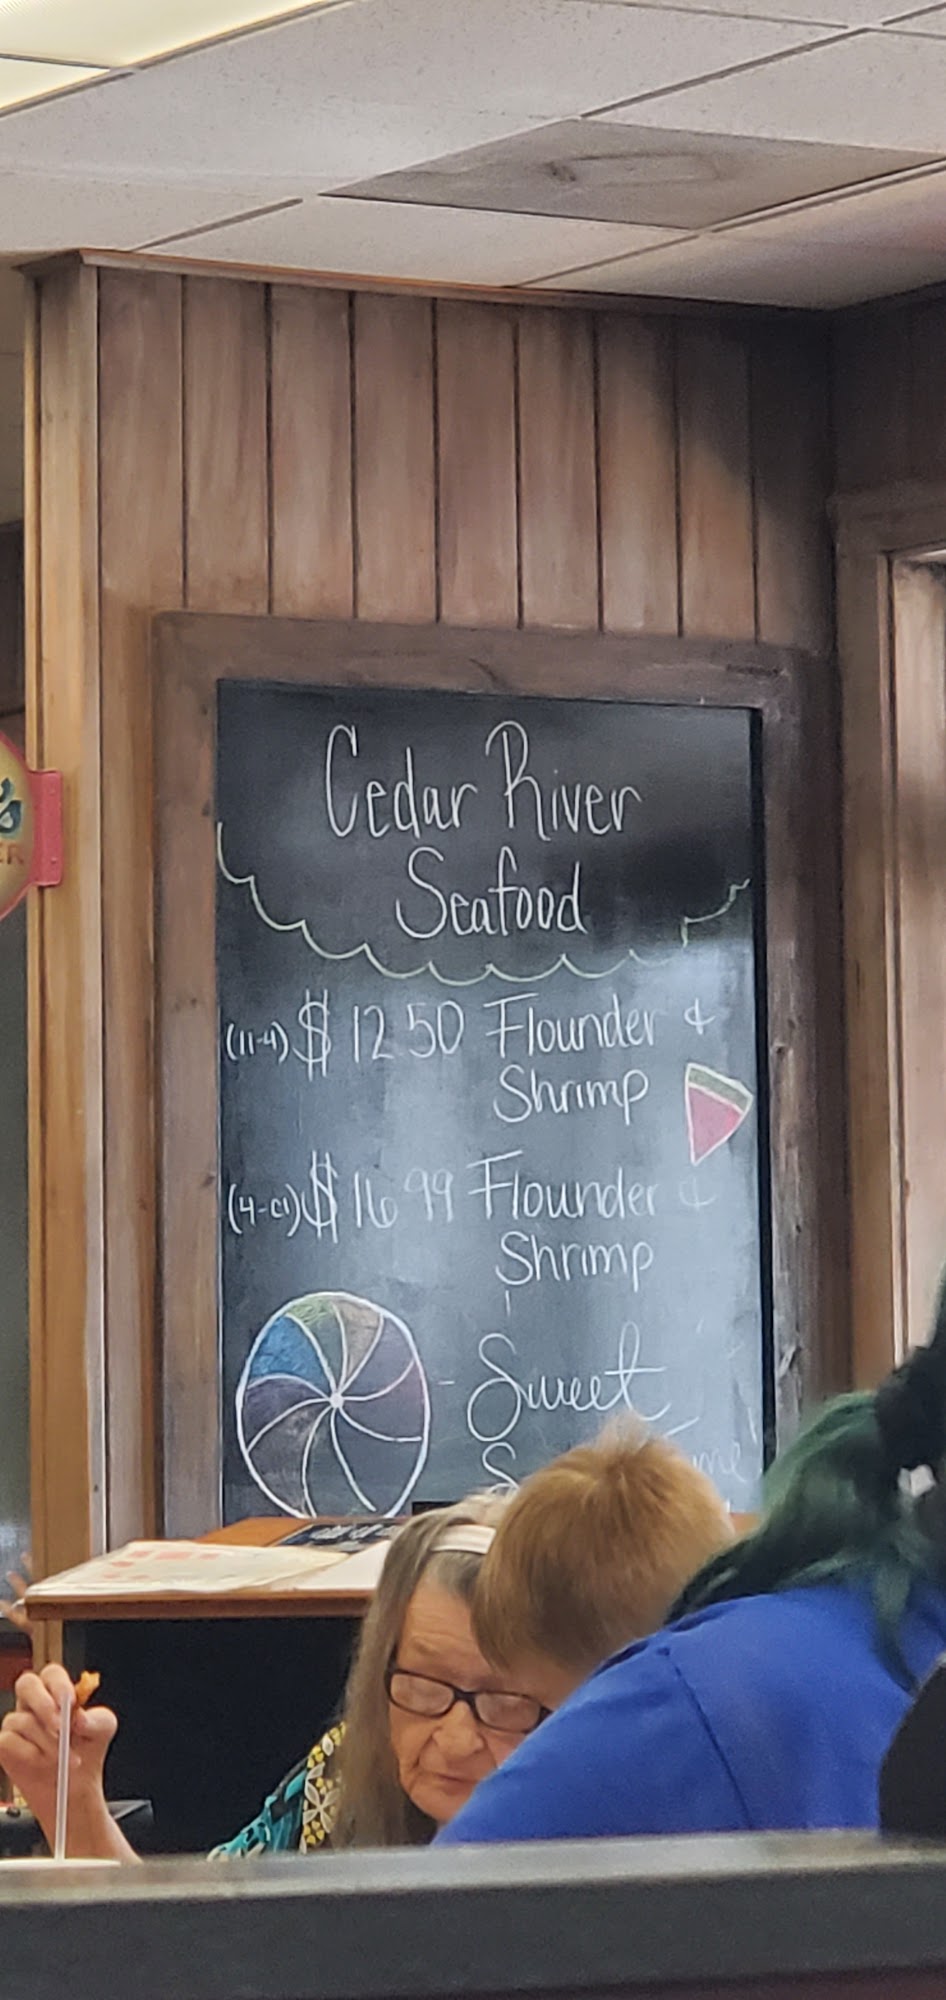 Cedar River
Seafood
(11-4) $ 12.50 Flounder &
Shrimp
(4-cl) $ 16.99 Flounder &
Shrimp
- Sweet